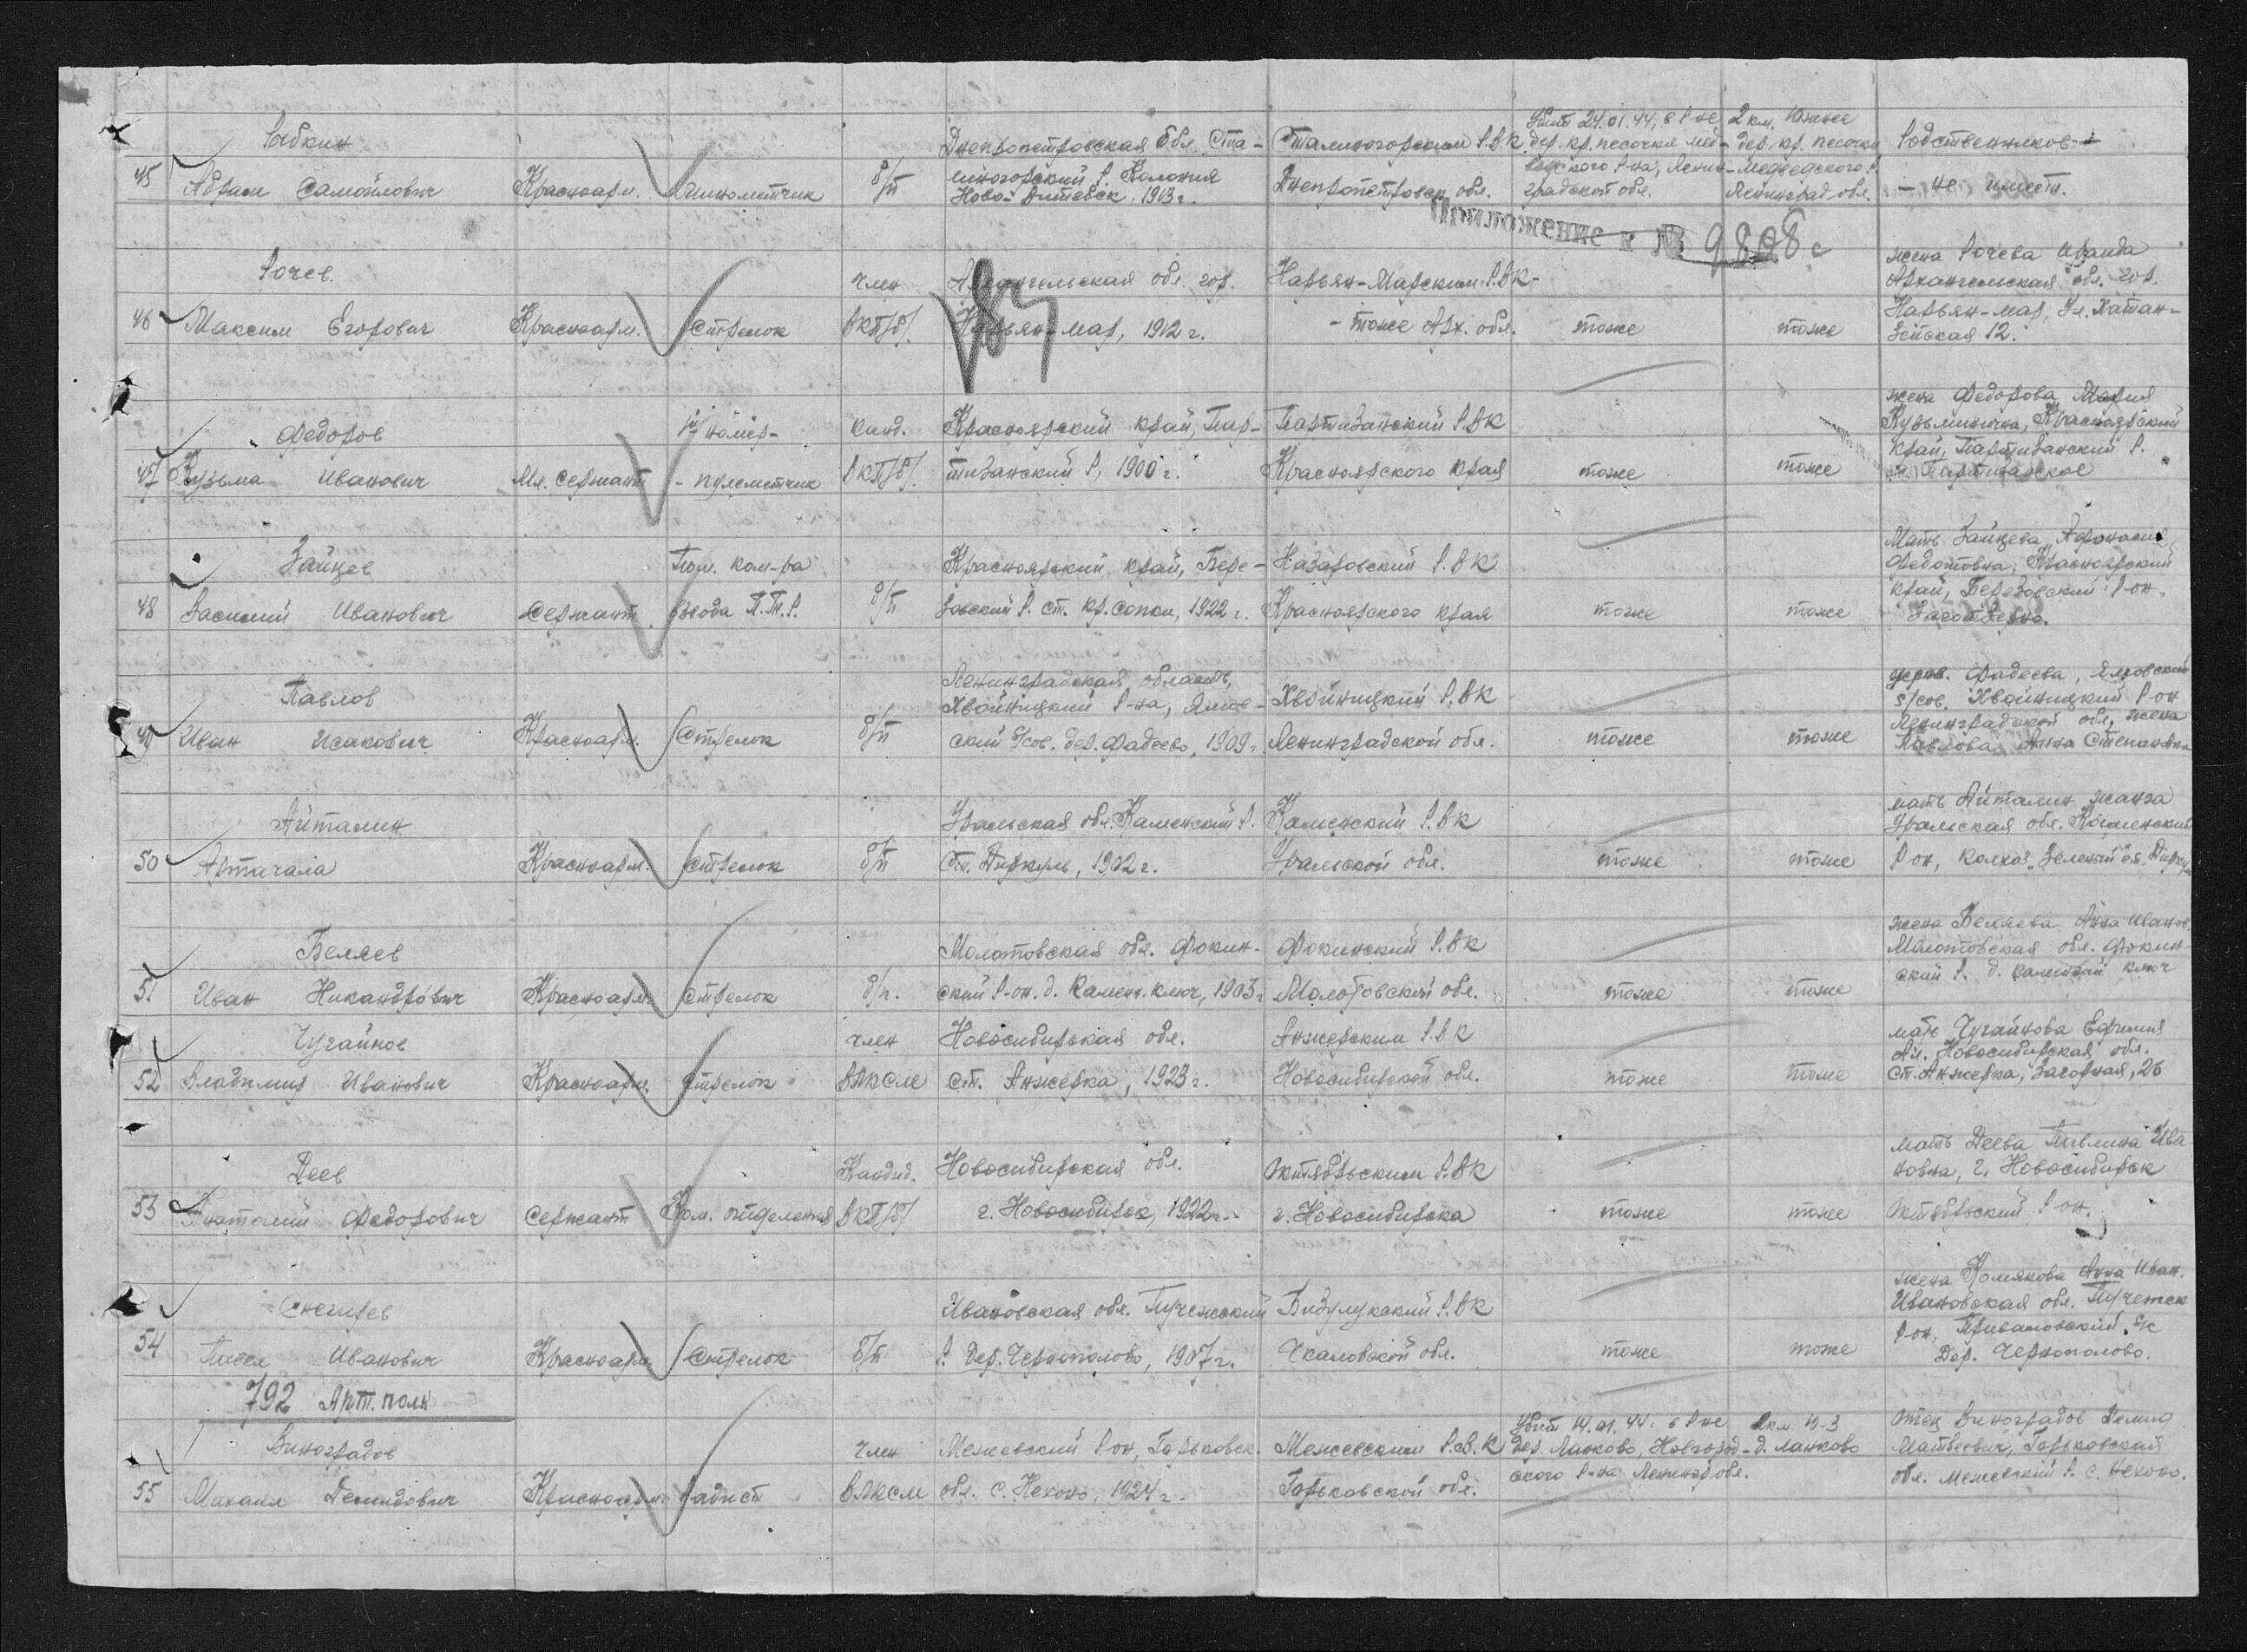 Убит 24.01.44, в р-не 2 км. южнее
Рабкин Днепропетровская обл. Ста- Сталиногорским РВК дер. кр. песочки мед- дер. кр. песочки Родственников
45 Абрам Самойлович Красноарм. б/п линогорский р. Колония Днепропетровск. обл. ведского р-на, Ленин- Медведского р.
Ново- 1913 г. градской обл. Ленинград. обл. - не имеет.
Приложение к № 9808с
Рочев член Архангельская обл. гор. Нарьян-Марским РВК- жена Рочева
83 Архангельская обл. гор.
46 Максим Егорович Красноарм. Стрелок ВКП/б/. Нарьян-мар, 1912 г. - тоже Арх. обл. тоже тоже Нарьян-мар, Ул.
12.
жена Федорова Мария
Федоров номер- канд. Красноярский край, Пар- Партизанский РВК Кузьминична, Красноярский
край, Партизанский р.
47 Кузьма Иванович Мл. сержант - пулеметчик ВКП/б/. тизанский р, 1900 г. Красноярского края тоже тоже Партизанское
Зайцев Пом. ком-ра Красноярский край, Бере- Назаровский РВК Мать Зайцева
Федотовна, Красноярский
48 Василий Иванович Сержант взвода П.Т.Р. б/п зовский р. ст. кр. сопки, 1922 г. Красноярского края тоже тоже край, Березовский р-он,
Заготзерно.
Павлов Ленинградская область, дер. Фадеева,
Хвойницкий р-на, Хвойницкий РВК с/сов. Хвойницкий р-он
49 Иван Исакович Красноарм. Стрелок б/п ский с/сов. дер. Фадеево, 1909 г. Ленинградской обл. тоже тоже Ленинградской обл, жена
Павлова Анна Степановна
Айталин Уральская обл. Каменский р. Каменский РВК мать Айталин
Уральская обл. Каменский
50 Артагала Красноарм. Стрелок б/п ст. Деркуль, 1902 г. Уральской обл. тоже тоже р-он, колхоз Зеленый
Беляев Молотовская обл. Фокин- Фокинский РВК жена Беляева Анна Иванов.
Молотовская обл. Фокин-
51 Иван Никандрович Красноарм. Стрелок б/п. ский р-он. д. Камен. ключ, 1903 г Молотовской обл. тоже тоже ский р. д. Каменный ключ
Чугайнов член Новосибирская обл. Анжерским РВК мать Чугайнова Ефимия
Новосибирская обл.
52 Владимир Иванович Красноарм. Стрелок ВЛКСМ ст. Анжерка, 1923 г. Новосибирской обл. тоже тоже ст. Анжерка, Загорная, 26
Деев Кандид. Новосибирская обл. Октябрьским РВК мать Деева Ива
новна, г. Новосибирск
53 Анатолий Федорович сержант Ком. отделения ВКП/б/ г. Новосибирск, 1922 г. г. Новосибирска тоже тоже Октябрьский р-он.
жена Комякова Анна Иван.
Снегирев Ивановская обл. Пучежский Бузулукский РВК Ивановская обл. Пучежск
р-он,
54 Павел Иванович Красноарм. Стрелок б/п р. дер. Чернополово, 1907 г. Чкаловской обл. тоже тоже Дер. Чернополово.
792 Арт. полк
Убит 14.01.44 г. в р-не 2 км.
Виноградов член Межевский р-он, Горьковск. Межевским РВК дер. Ланково, Новгород- д. Ланково Отец Виноградов Демид
Матвеевич, Горьковской
55 Михаил Демидович Красноарм. радист ВЛКСМ обл. с. 1924 г. Горьковской обл. ского р-на Ленингр. обл. обл. Межевский р. с.